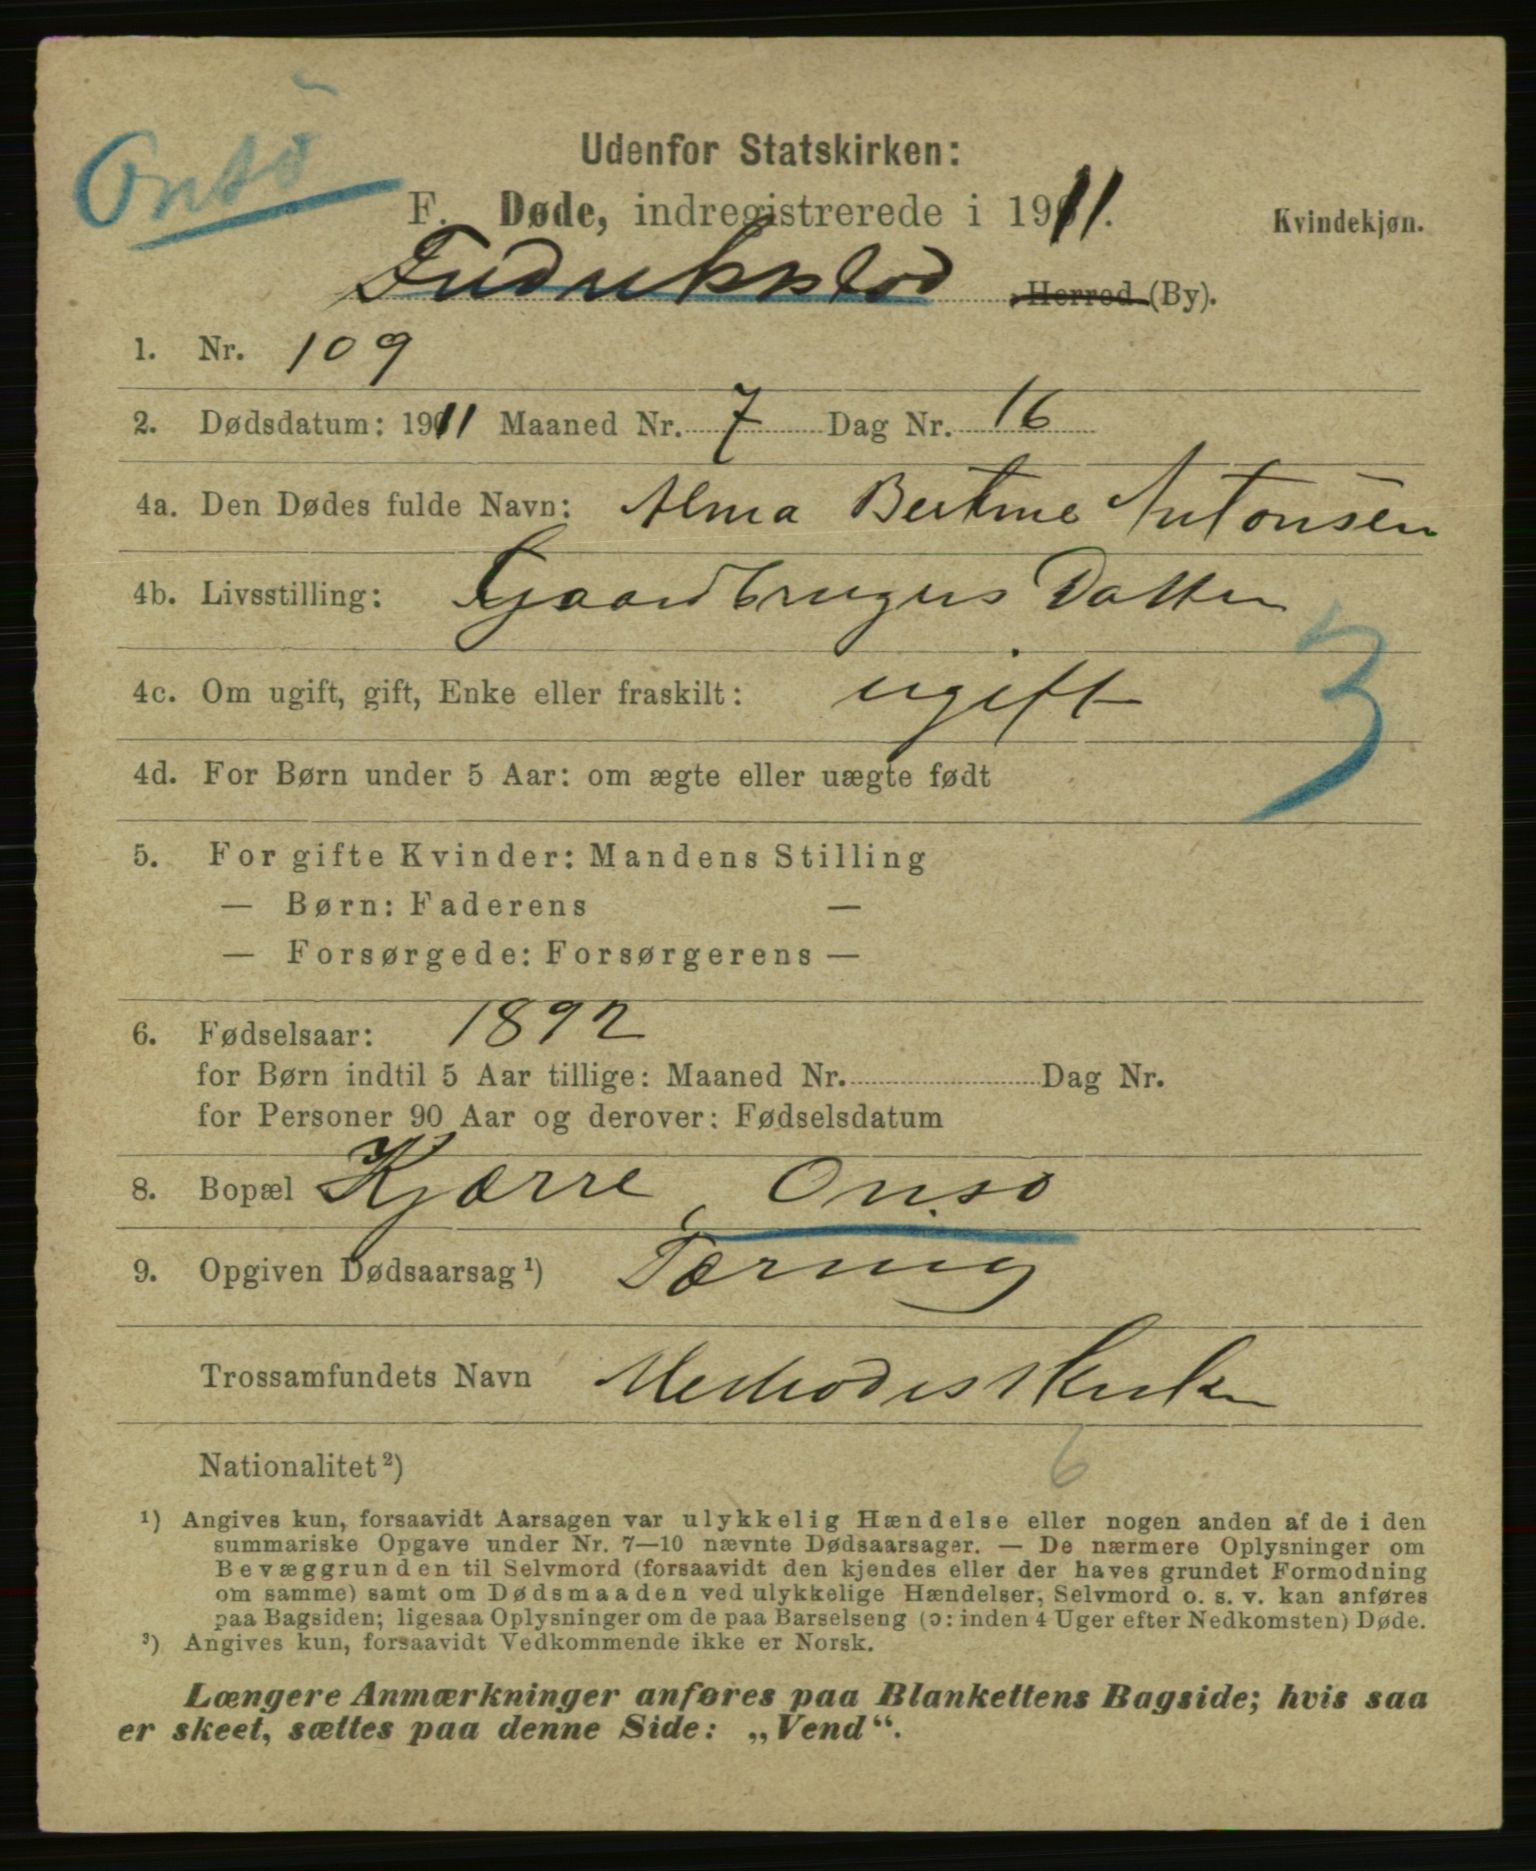 Onsö
Udenfor Statskirken:
F. Døde, indregistrerede i 1911. Kvindekjøn.
Fredrikstad Herred (By).
1. Nr. 109
2. Dødsdatum: 1911 Maaned Nr. 7 Dag Nr. 16
4a. Den Dødes fulde Navn: Alma Bertine Antonsen
4b. Livsstilling: Gaardbrugers Datter
4c. Om ugift, gift, Enke eller fraskilt: ugift
3
4d. For Børn under 5 Aar: om ægte eller uægte født
5. For gifte Kvinder: Mandens Stilling
— Børn: Faderens —
— Forsørgede: Forsørgerens —
6. Fødselsaar: 1892
for Børn indtil 5 Aar tillige: Maaned Nr. Dag Nr.
for Personer 90 Aar og derover: Fødselsdatum
8. Bopæl Kjærre, Onsö
9. Opgiven Dødsaarsag ¹) Tæring
Trossamfundets Navn Methodistkirken
6
Nationalitet ²)
¹) Angives kun, forsaavidt Aarsagen var ulykkelig Hændelse eller nogen anden af de i den
summariske Opgave under Nr. 7—10 nævnte Dødsaarsager. — De nærmere Oplysninger om
Bevæggrunden til Selvmord (forsaavidt den kjendes eller der haves grundet Formodning
om samme) samt om Dødsmaaden ved ulykkelige Hændelser, Selvmord o. s. v. kan anføres
paa Bagsiden; ligesaa Oplysninger om de paa Barselseng (ɔ: inden 4 Uger efter Nedkomsten) Døde.
³) Angives kun, forsaavidt Vedkommende ikke er Norsk.
Længere Anmærkninger anføres paa Blankettens Bagside; hvis saa
er skeet, sættes paa denne Side: „Vend“.